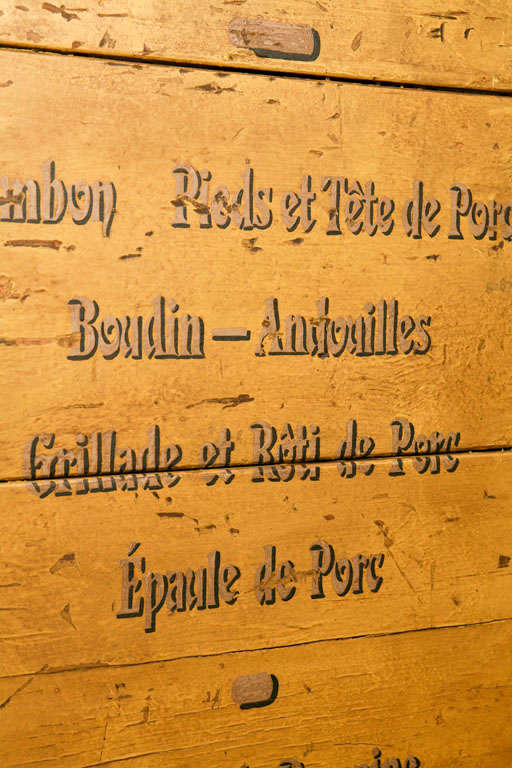 mbon Pieds et Tête de Porc
Boudin — Andouilles
Grillade et Rôti de Porc
Épaule de Porc